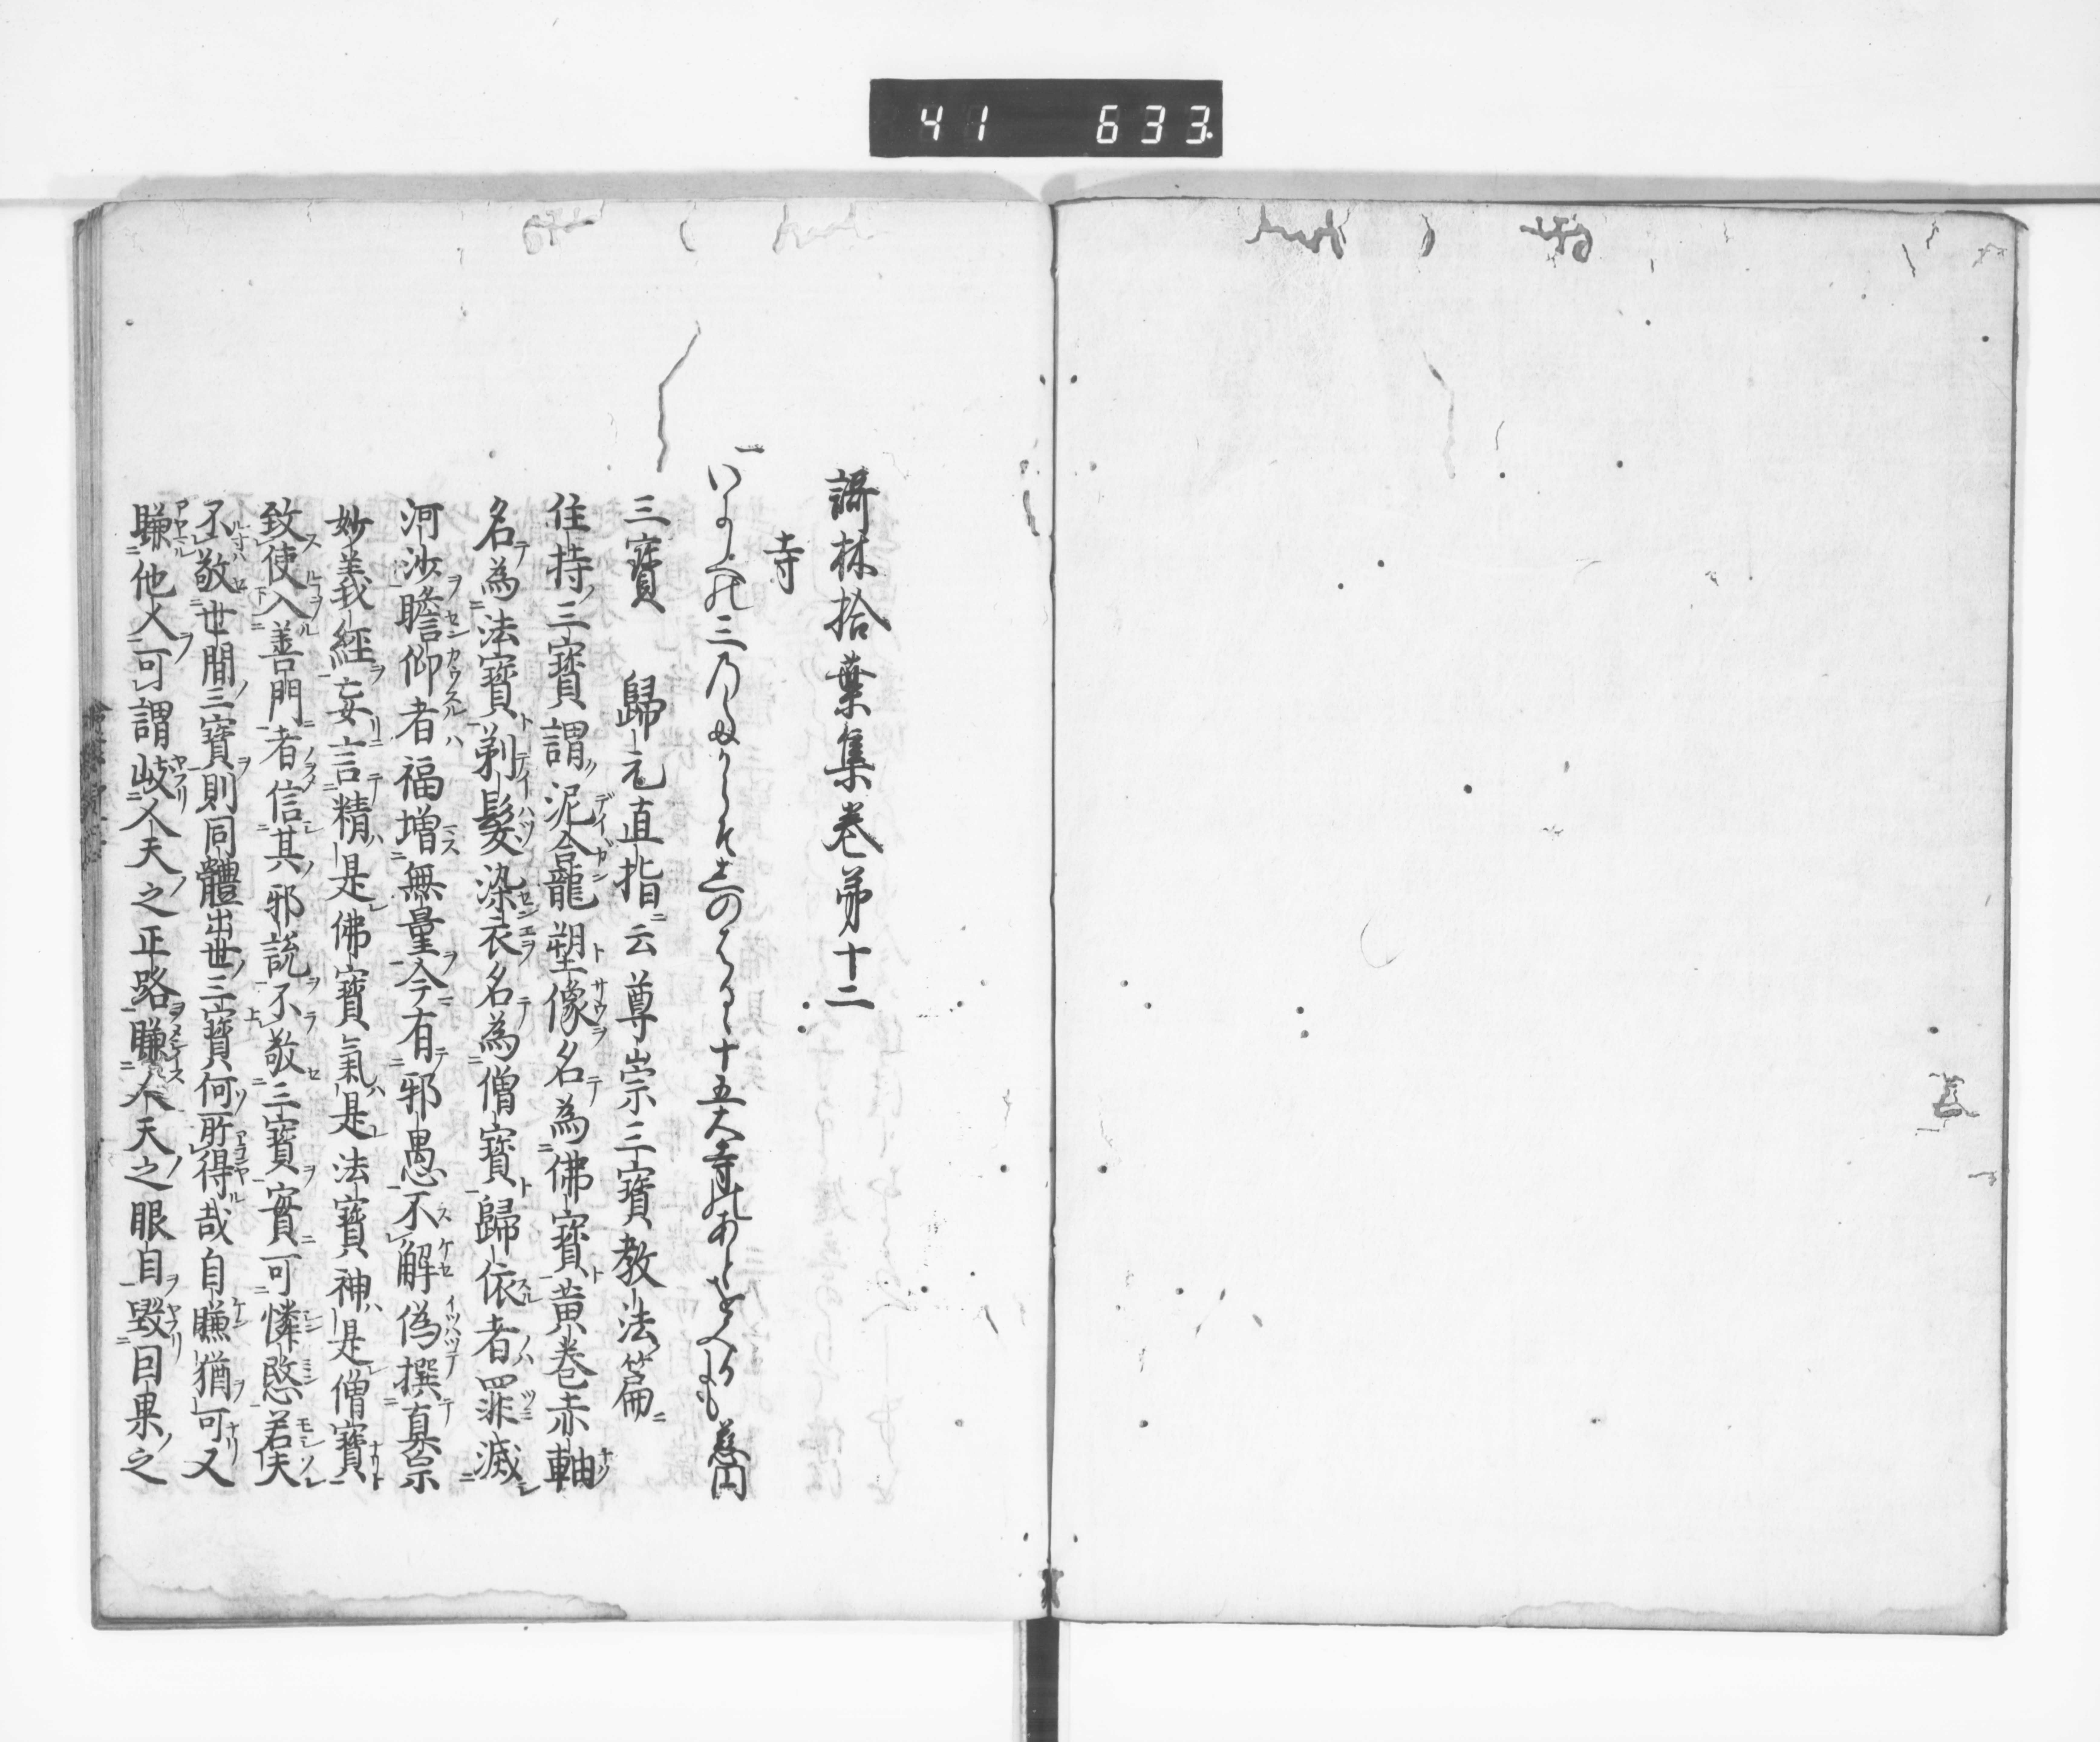 41 633
謌林拾葉集巻第十二
寺
三の
十五大寺のあとを 慈円
三寶 歸元直指云尊崇三寶教法篇
住持三寶謂泥龕塑像名為佛寶黄巻赤軸
名為法寶剃髮染衣名為僧寶歸依者罪滅
河沙瞻仰者福增無量今有邪愚不解偽撰真宗
妙義經妄言精是佛寶氣是法寶神是僧寶
致使入善門者信其邪說不敬三寶實可憐愍若夫
不敬世間三寶則同體出世三寶何所得哉自賺猶可又
賺他人可謂岐人天之正路賺人天之眼自毀因果之